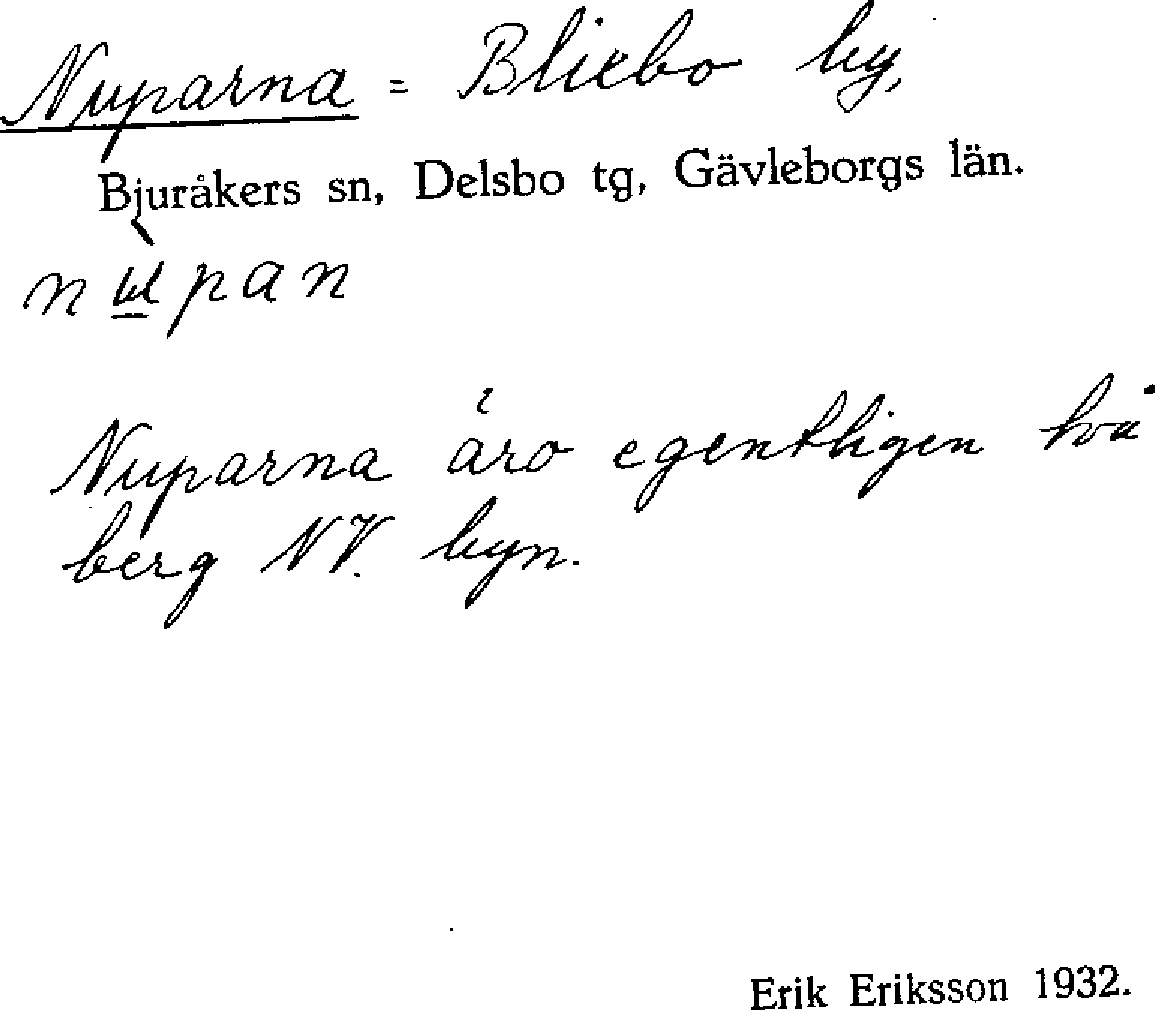 Nuparna = Bliebo by,
Bjuråkers sn, Delsbo tg, Gävleborgs län.
n ù̲pan
Nuparna äro egentligen två
berg NV. byn.
Erik Eriksson 1932.